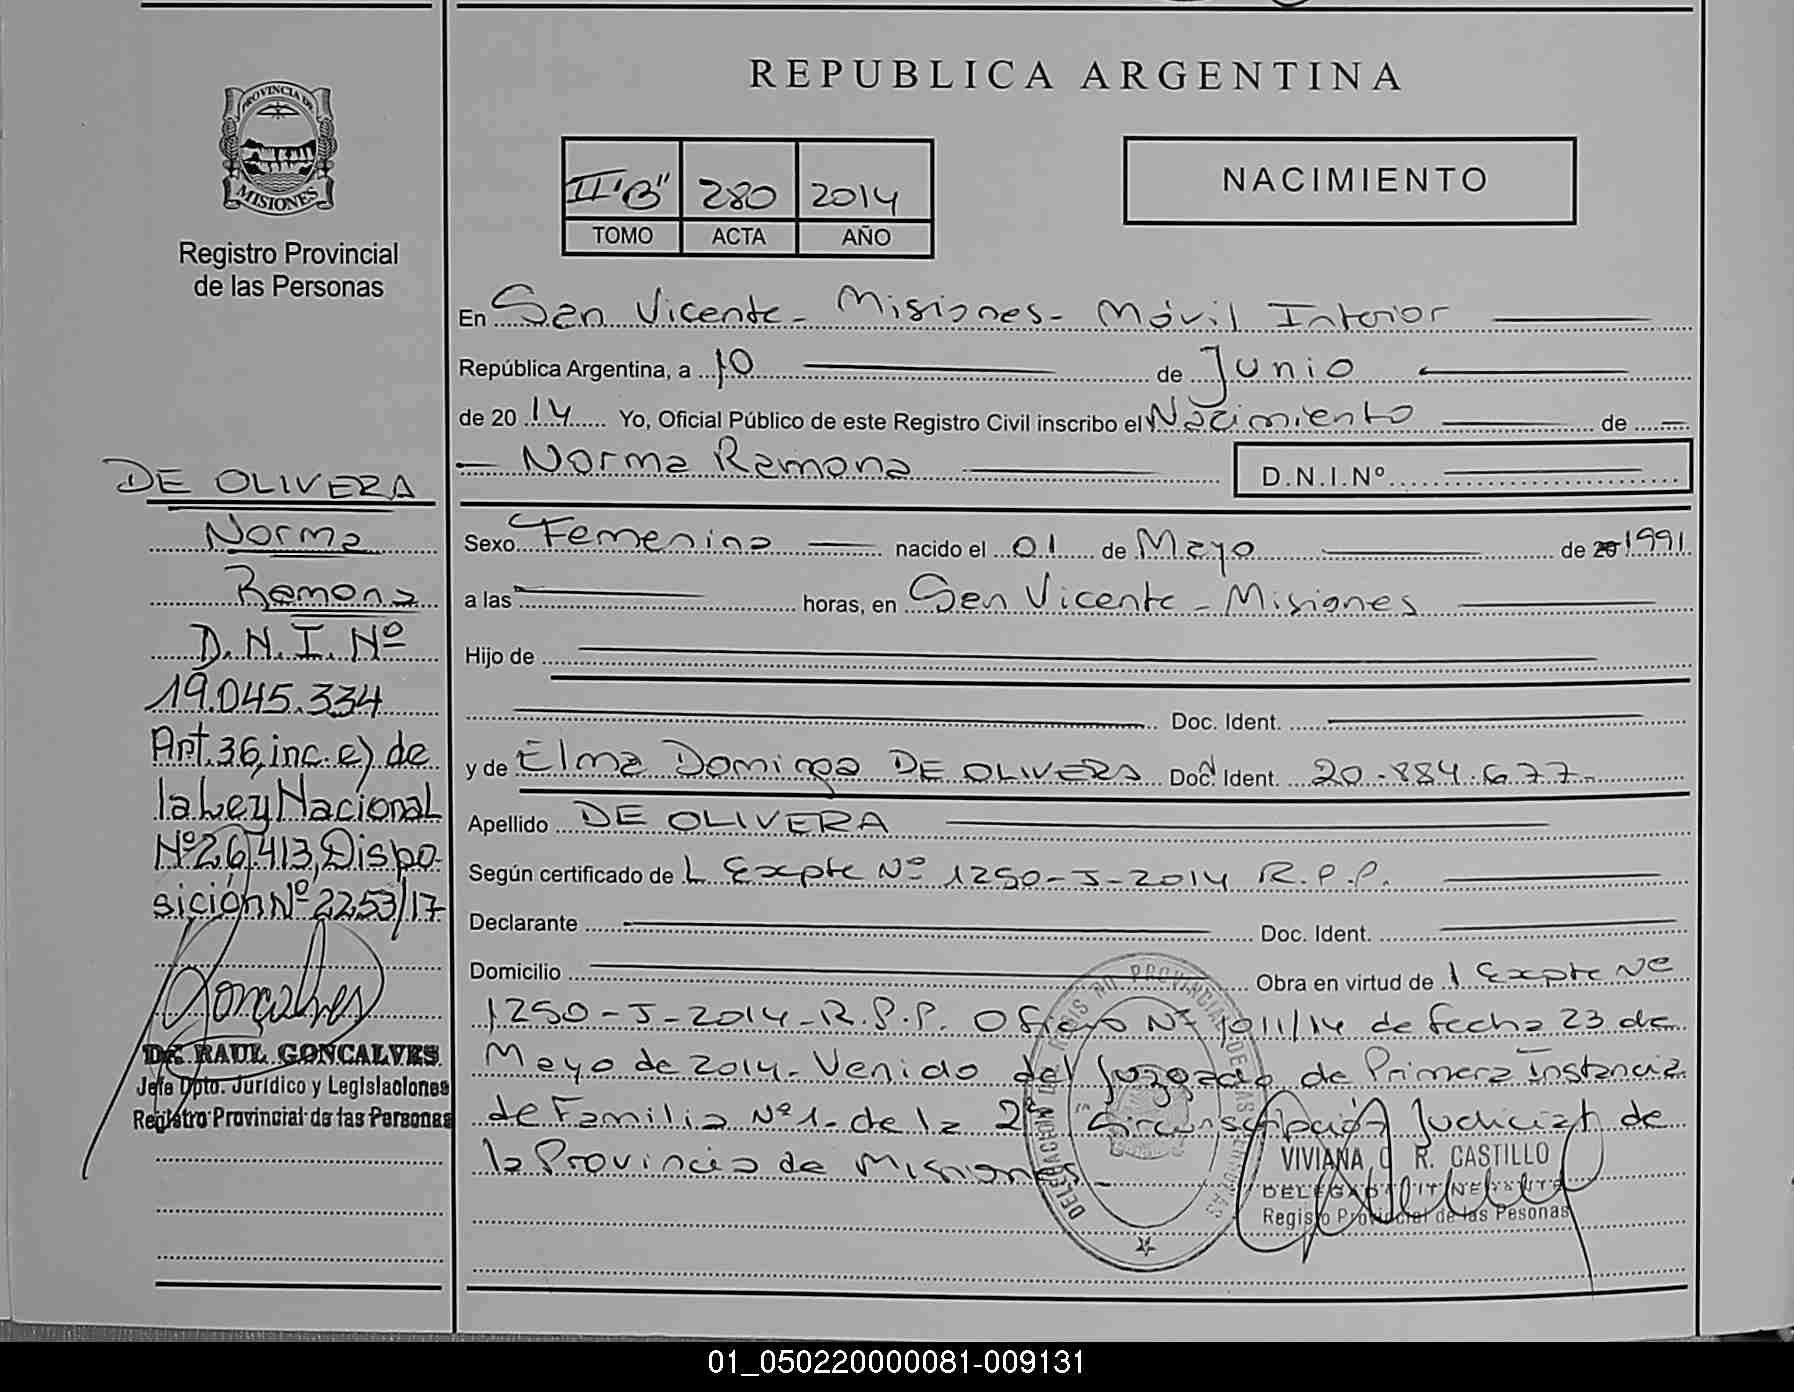 REPUBLICA ARGENTINA
PROVINCIA DE
MISIONES
Registro Provincial
de las Personas
II "B" 280 2014
TOMO ACTA AÑO
NACIMIENTO
En San Vicente - Misiones - Móvil Interior
República Argentina, a 10 de Junio
de 2014 Yo, Oficial Público de este Registro Civil inscribo el Nacimiento de
Norma Ramona D.N.I.Nº
Sexo Femenino nacido el 01 de Mayo de 20 1991
a las horas, en San Vicente - Misiones
Hijo de
Doc. Ident.
y de Elma Dominga DE OLIVERA Doc. Ident. 20.884.677
Apellido DE OLIVERA
Según certificado de L Expte Nº 1250-J-2014 R.P.P.
Declarante Doc. Ident.
Domicilio Obra en virtud de Expte Nº
1250-J-2014-R.P.P. Oficio Nº 1011/14 de fecha 23 de
Mayo de 2014. Venido del Juzgado de Primera Instancia
de Familia Nº1. de la 2ª Circunscripción Judicial de
la Provincia de Misiones.-
VIVIANA R. CASTILLO
DELEGADA ITINERANTE
Registro Provincial de las Pesonas
DE OLIVERA
Norma
Ramona
D.N.I. Nº
19.045.334
Art.36,inc.e) de
la Ley Nacional
Nº26.413,Dispo-
sición Nº 2253/17
Gonçalves
DR. RAUL GONCALVES
Jefe Dpto. Jurídico y Legislaciones
Registro Provincial de las Personas
01_050220000081-009131